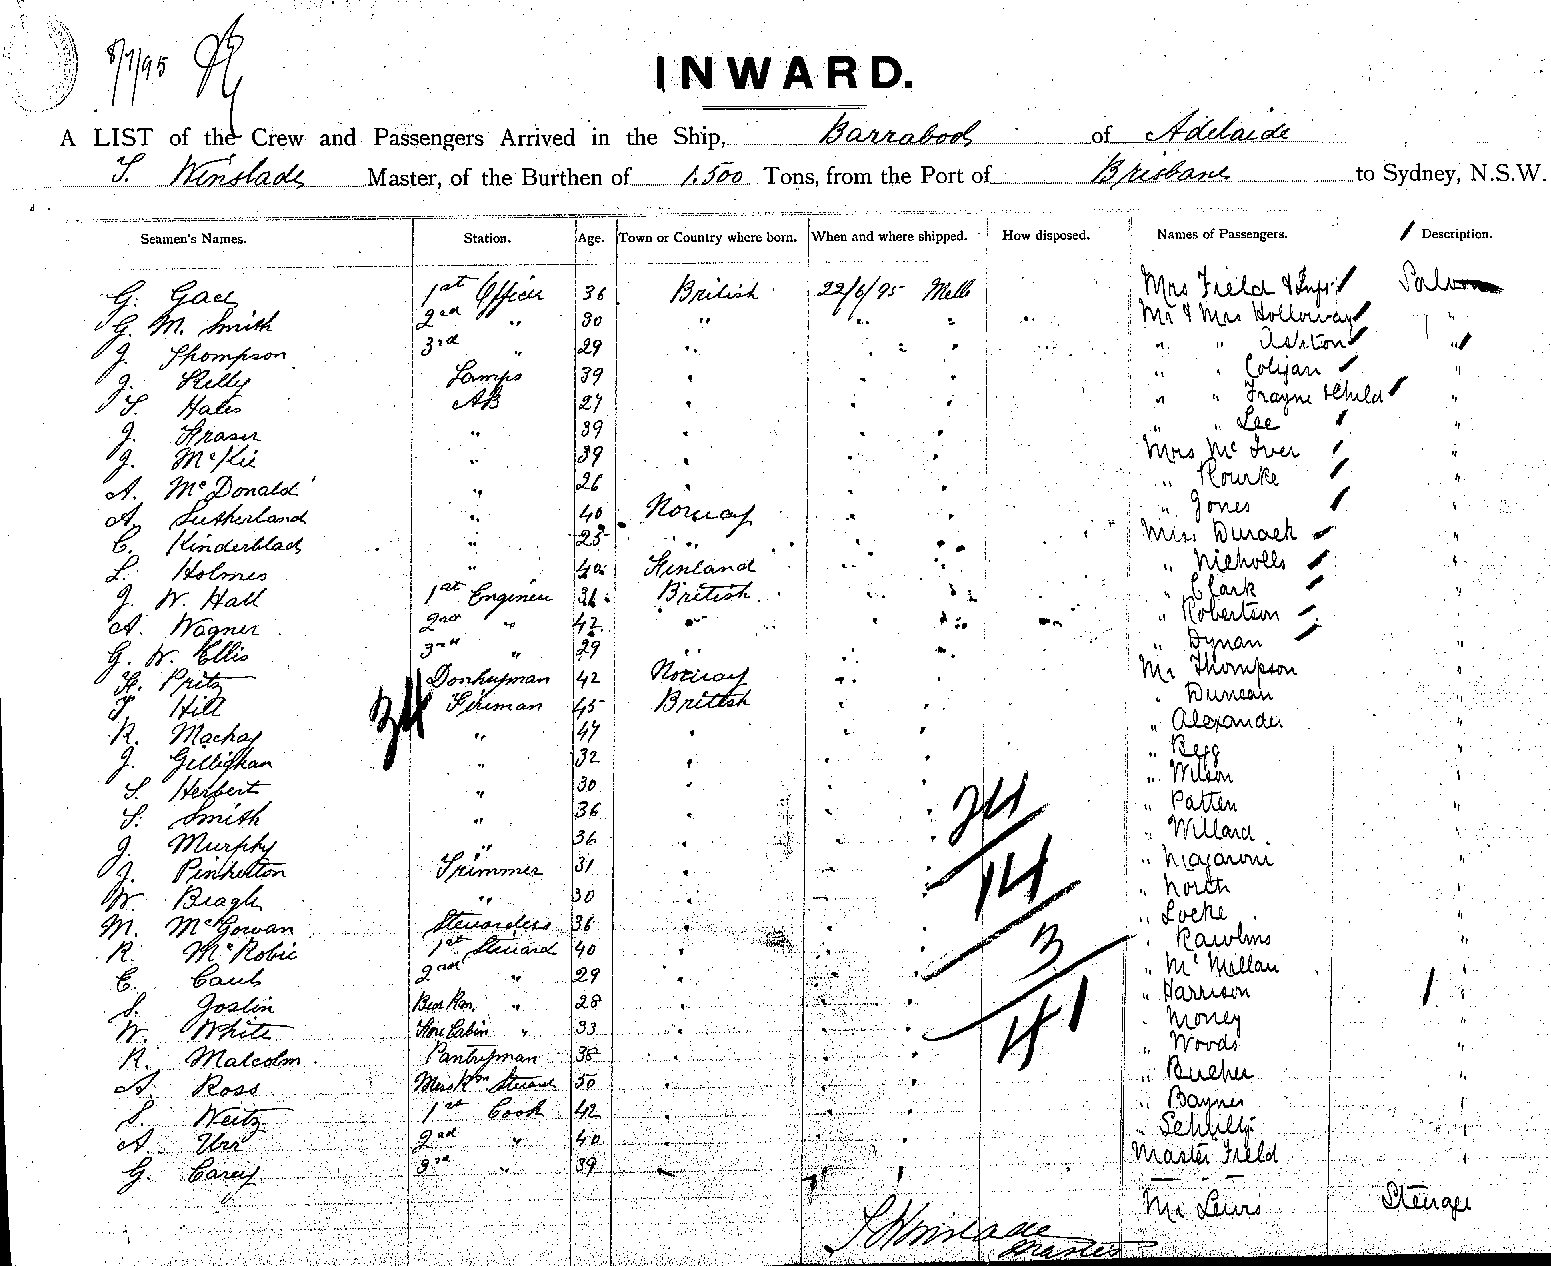 8/7/95
INWARD.
A LIST of the Crew and Passengers Arrived in the Ship, Barrabool of Adelaide
S. Winslade Master, of the Burthen of 1.500 Tons, from the Port of Brisbane to Sydney, N.S.W.
Seamen's Names. Station. Age. Town or Country where born. When and where shipped. How disposed. Names of Passengers. Description.
G. 1st Officer 36 British 22/6/95 Melb Mrs Field & Saloon
G. M. Smith 2nd " 30 " " " Mr & Mrs Holloway "
J. Thompson 3rd " 29 " " " " " Ashton "
J. Kelly Lamps 39 " " " " " "
Hales AB 27 " " " " " Frayne & Child "
J. Fraser " 39 " " " " " Lee "
J. McKie " 39 " " " Mrs McIver "
A. McDonald " 26 " " " " Rourke "
A. Sutherland " 40 Norway " " " Jones "
C. Kinderblad " 25 " " " Miss Durack "
L. Holmes " 40 Finland " " " Nicholls "
J. W. Hall 1st Engineer 36 British " " " Clark "
A. Wagner 2nd " 42 " " " " Robertson "
G. W. Ellis 3rd " 29 " " " " Dynan "
Pritz Donkeyman 42 Norway " " Mr Thompson "
34
T. Hill Fireman 45 British " " " Duncan "
R. Mackay " 47 " " " " Alexander "
J. Gillighan " 32 " " " " Begg "
S. Herbert " 30 " " " " Wilson "
S. Smith " 36 " " " " Patten "
J. Murphy " 36 " " " " Willard "
24
J. Pinkerton Trimmer 31 " " " " "
14
W. Beagh " 30 " " " " North "
M. McGowan Stewardess 36 " " " " Locke "
3
R. McRobie 1st Steward 40 " " " " Rawlins "
E. 2nd " 29 " " " " McMillan "
41
S. Joslin " 28 " " " " Harrison "
W. White Fore Cabin " 33 " " " " Money "
R. Malcolm Pantryman 38 " " " " Woods "
A. Ross Mess Rm Steward 50 " " " " Bucher "
S. Weitz 1st Cook 42 " " " " Baynes "
A. Urr 2nd " 40 " " " " "
G. Carey 3rd " 39 " " " Master Field "
Mr Lewis Steerage
S Winslade
Master